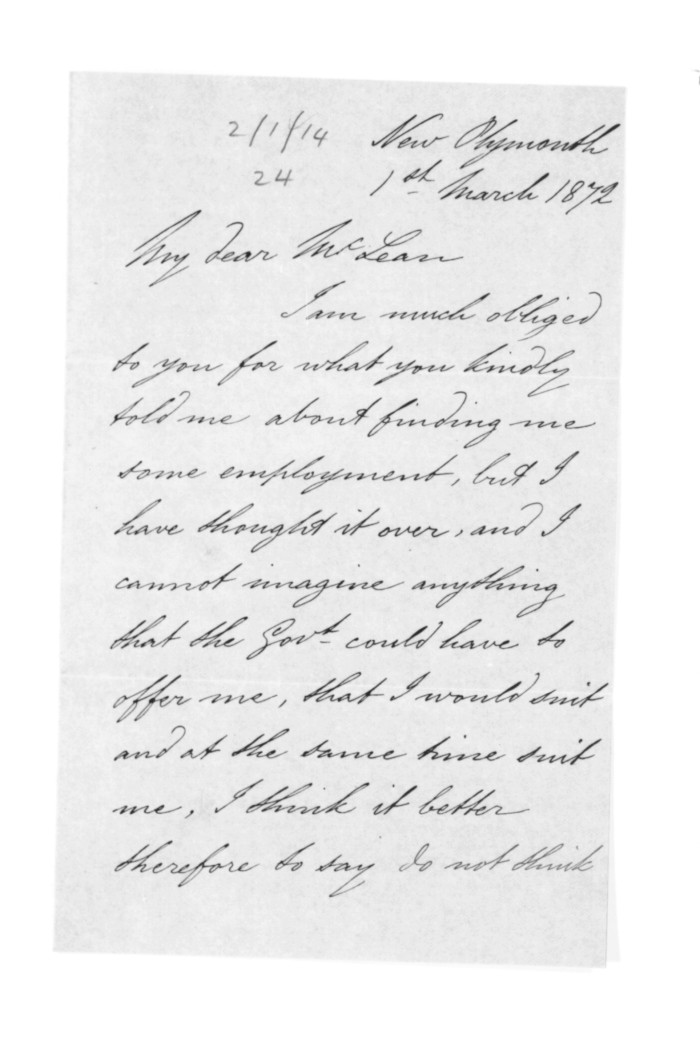 2/1/14 New Plymouth
24 1st March 1872
My dear McLean
I am much obliged
to you for what you kindly
told me about finding me
some employment, but I
have thought it over, and I
cannot imagine anything
that the Govt could have to
offer me, that I would suit
and at the same time suit
me, I think it better
therefore to say do not think